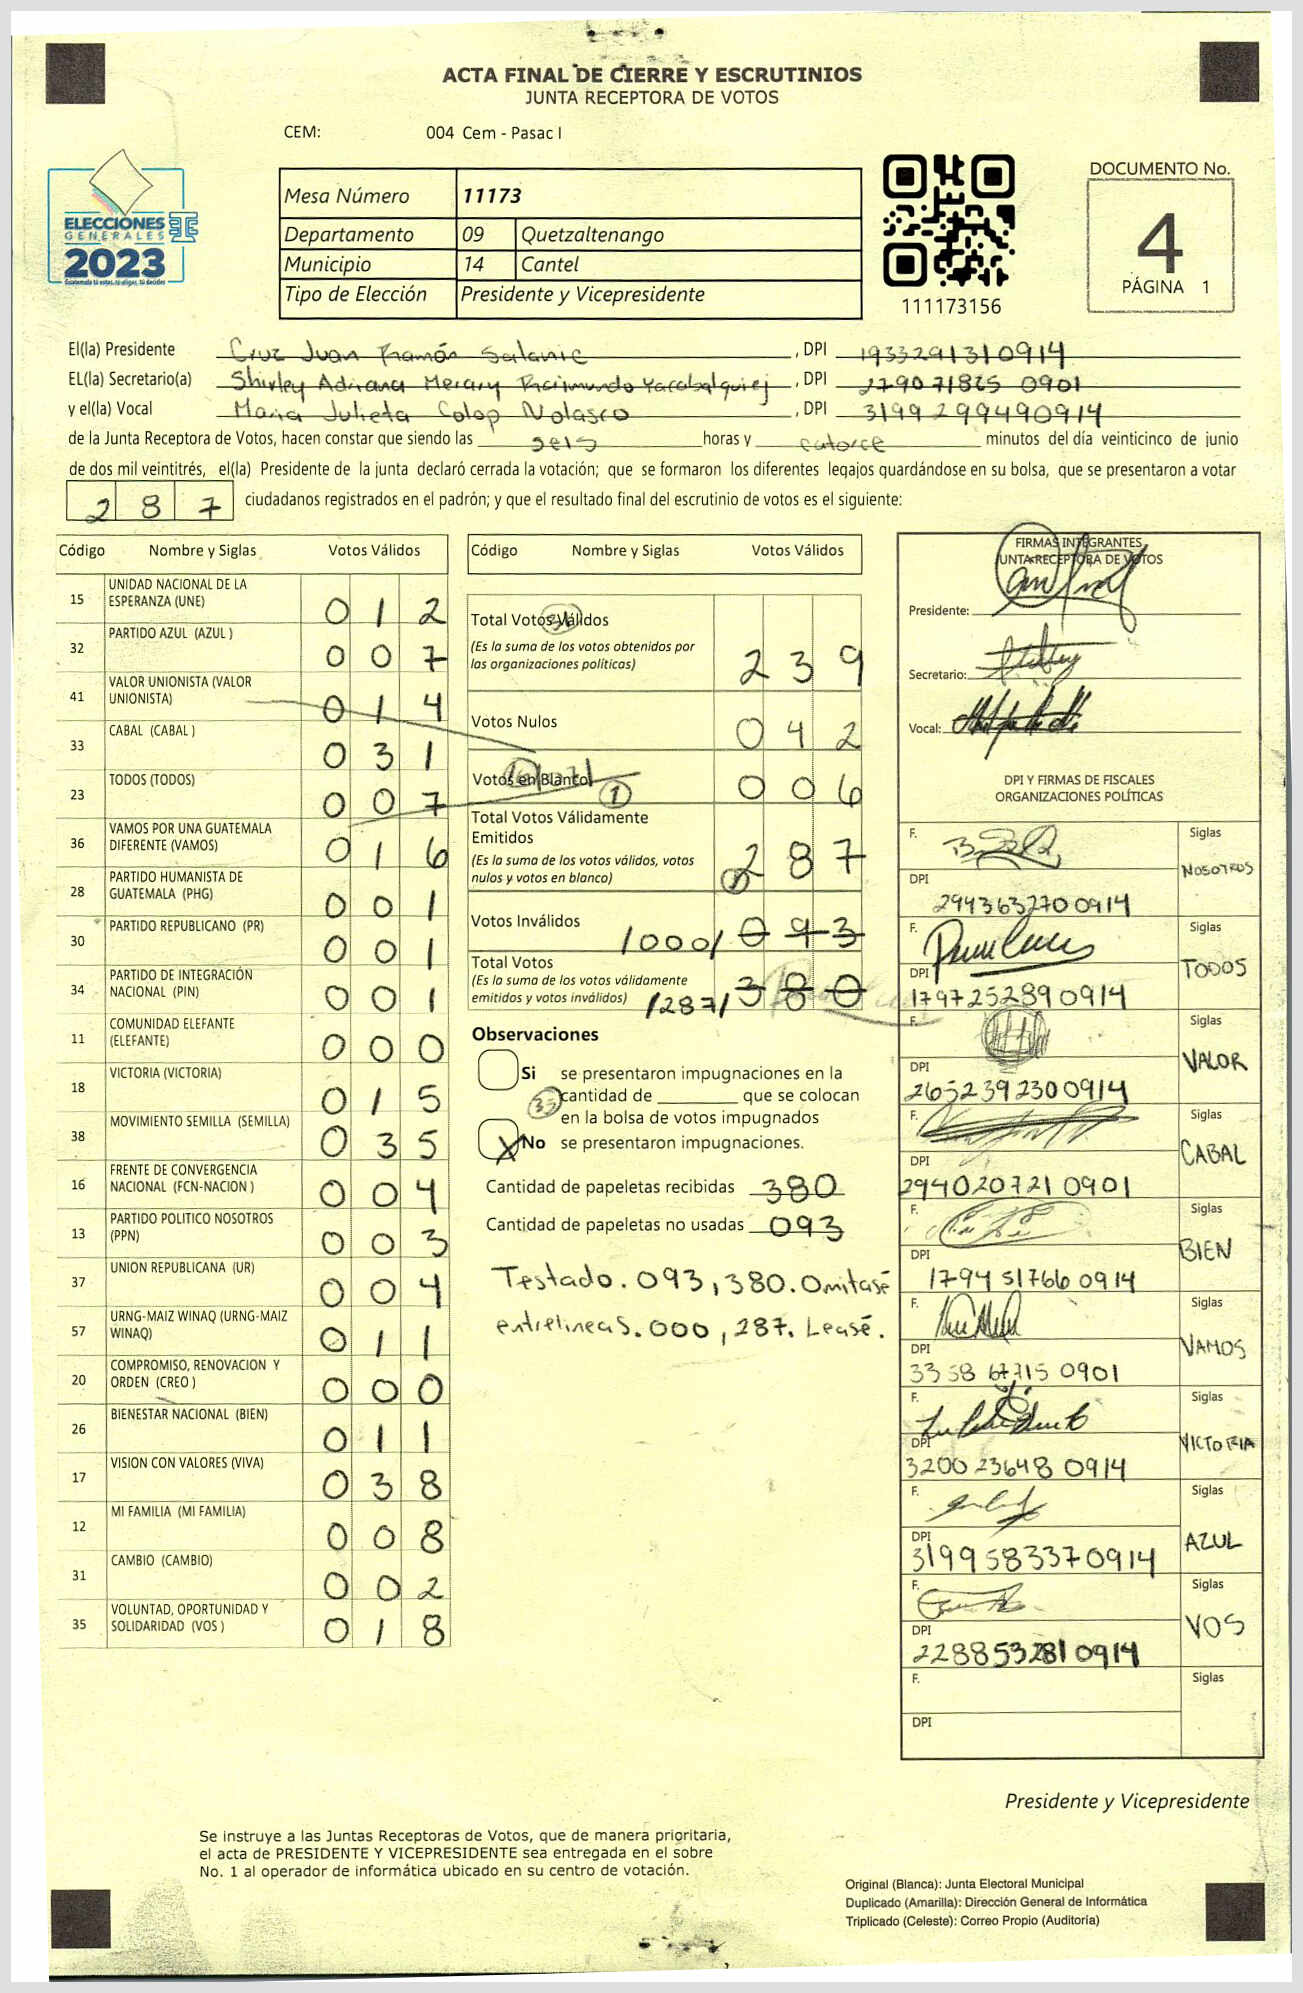 ACTA FINAL DE CIERRE Y ESCRUTINIOS
JUNTA RECEPTORA DE VOTOS
CEM: 004 Cem - Pasac I
ELECCIONES
GENERALES
2023
Guatemala tú votas, tú eliges, tú decides
Mesa Número 11173
Departamento 09 Quetzaltenango
Municipio 14 Cantel
Tipo de Elección Presidente y Vicepresidente
111173156
DOCUMENTO No.
4
PÁGINA 1
El(la) Presidente Cruz Juan Ramón Salanic, DPI 1933291310914
EL(la) Secretario(a) Shirley Adriana Merary Raimundo Yacabalquiej, DPI 2790 71825 0901
y el(la) Vocal Maria Julieta Colop Nolasco, DPI 3199 299490914
de la Junta Receptora de Votos, hacen constar que siendo las seis horas y catorce minutos del día veinticinco de junio
de dos mil veintitrés, el(la) Presidente de la junta declaró cerrada la votación; que se formaron los diferentes legajos quardándose en su bolsa, que se presentaron a votar
2 8 7 ciudadanos registrados en el padrón; y que el resultado final del escrutinio de votos es el siguiente:
Código Nombre y Siglas Votos Válidos
15 UNIDAD NACIONAL DE LA ESPERANZA (UNE) 0 1 2
32 PARTIDO AZUL (AZUL ) 0 0 7
41 VALOR UNIONISTA (VALOR UNIONISTA) 0 1 4
33 CABAL (CABAL ) 0 3 1
23 TODOS (TODOS) 0 0 7
36 VAMOS POR UNA GUATEMALA DIFERENTE (VAMOS) 0 1 6
28 PARTIDO HUMANISTA DE GUATEMALA (PHG) 0 0 1
30 PARTIDO REPUBLICANO (PR) 0 0 1
34 PARTIDO DE INTEGRACIÓN NACIONAL (PIN) 0 0 1
11 COMUNIDAD ELEFANTE (ELEFANTE) 0 0 0
18 VICTORIA (VICTORIA) 0 1 5
38 MOVIMIENTO SEMILLA (SEMILLA) 0 3 5
16 FRENTE DE CONVERGENCIA NACIONAL (FCN-NACION ) 0 0 4
13 PARTIDO POLITICO NOSOTROS (PPN) 0 0 3
37 UNION REPUBLICANA (UR) 0 0 4
57 URNG-MAIZ WINAQ (URNG-MAIZ WINAQ) 0 1 1
20 COMPROMISO, RENOVACION Y ORDEN (CREO ) 0 0 0
26 BIENESTAR NACIONAL (BIEN) 0 1 1
17 VISION CON VALORES (VIVA) 0 3 8
12 MI FAMILIA (MI FAMILIA) 0 0 8
31 CAMBIO (CAMBIO) 0 0 2
35 VOLUNTAD, OPORTUNIDAD Y SOLIDARIDAD (VOS ) 0 1 8
Código Nombre y Siglas Votos Válidos
Total Votos Válidos
(Es la suma de los votos obtenidos por
las organizaciones políticas) 2 3 9
Votos Nulos 0 4 2
Votos en Blanco 0 0 6
Total Votos Válidamente
Emitidos
(Es la suma de los votos válidos, votos
nulos y votos en blanco) 2 8 7
Votos Inválidos /000/ 0 9 3
Total Votos
(Es la suma de los votos válidamente
emitidos y votos inválidos) /287/ 3 8 0
Observaciones
Si se presentaron impugnaciones en la
cantidad de ________ que se colocan
en la bolsa de votos impugnados
X No se presentaron impugnaciones.
Cantidad de papeletas recibidas 380
Cantidad de papeletas no usadas 093
Testado. 093, 380. Omitasé
entrelineas. 000, 287. Leasé.
FIRMAS INTEGRANTES
JUNTA RECEPTORA DE VOTOS
Presidente:
Secretario:
Vocal:
DPI Y FIRMAS DE FISCALES
ORGANIZACIONES POLÍTICAS
F. Siglas
NOSOTROS
DPI
2943632700914
F. Siglas
TODOS
DPI
1797252890914
F. Siglas
VALOR
DPI
2652392300914
F. Siglas
CABAL
DPI
2940207210901
F. Siglas
BIEN
DPI
1794 51766 0914
F. Siglas
VAMOS
DPI
3358 67715 0901
F. Siglas
VICTORIA
DPI
3200 23648 0914
F. Siglas
AZUL
DPI
3199583370914
F. Siglas
VOS
DPI
2288532810914
F. Siglas
DPI
Presidente y Vicepresidente
Se instruye a las Juntas Receptoras de Votos, que de manera prioritaria,
el acta de PRESIDENTE Y VICEPRESIDENTE sea entregada en el sobre
No. 1 al operador de informática ubicado en su centro de votación.
Original (Blanca): Junta Electoral Municipal
Duplicado (Amarilla): Dirección General de Informática
Triplicado (Celeste): Correo Propio (Auditoría)